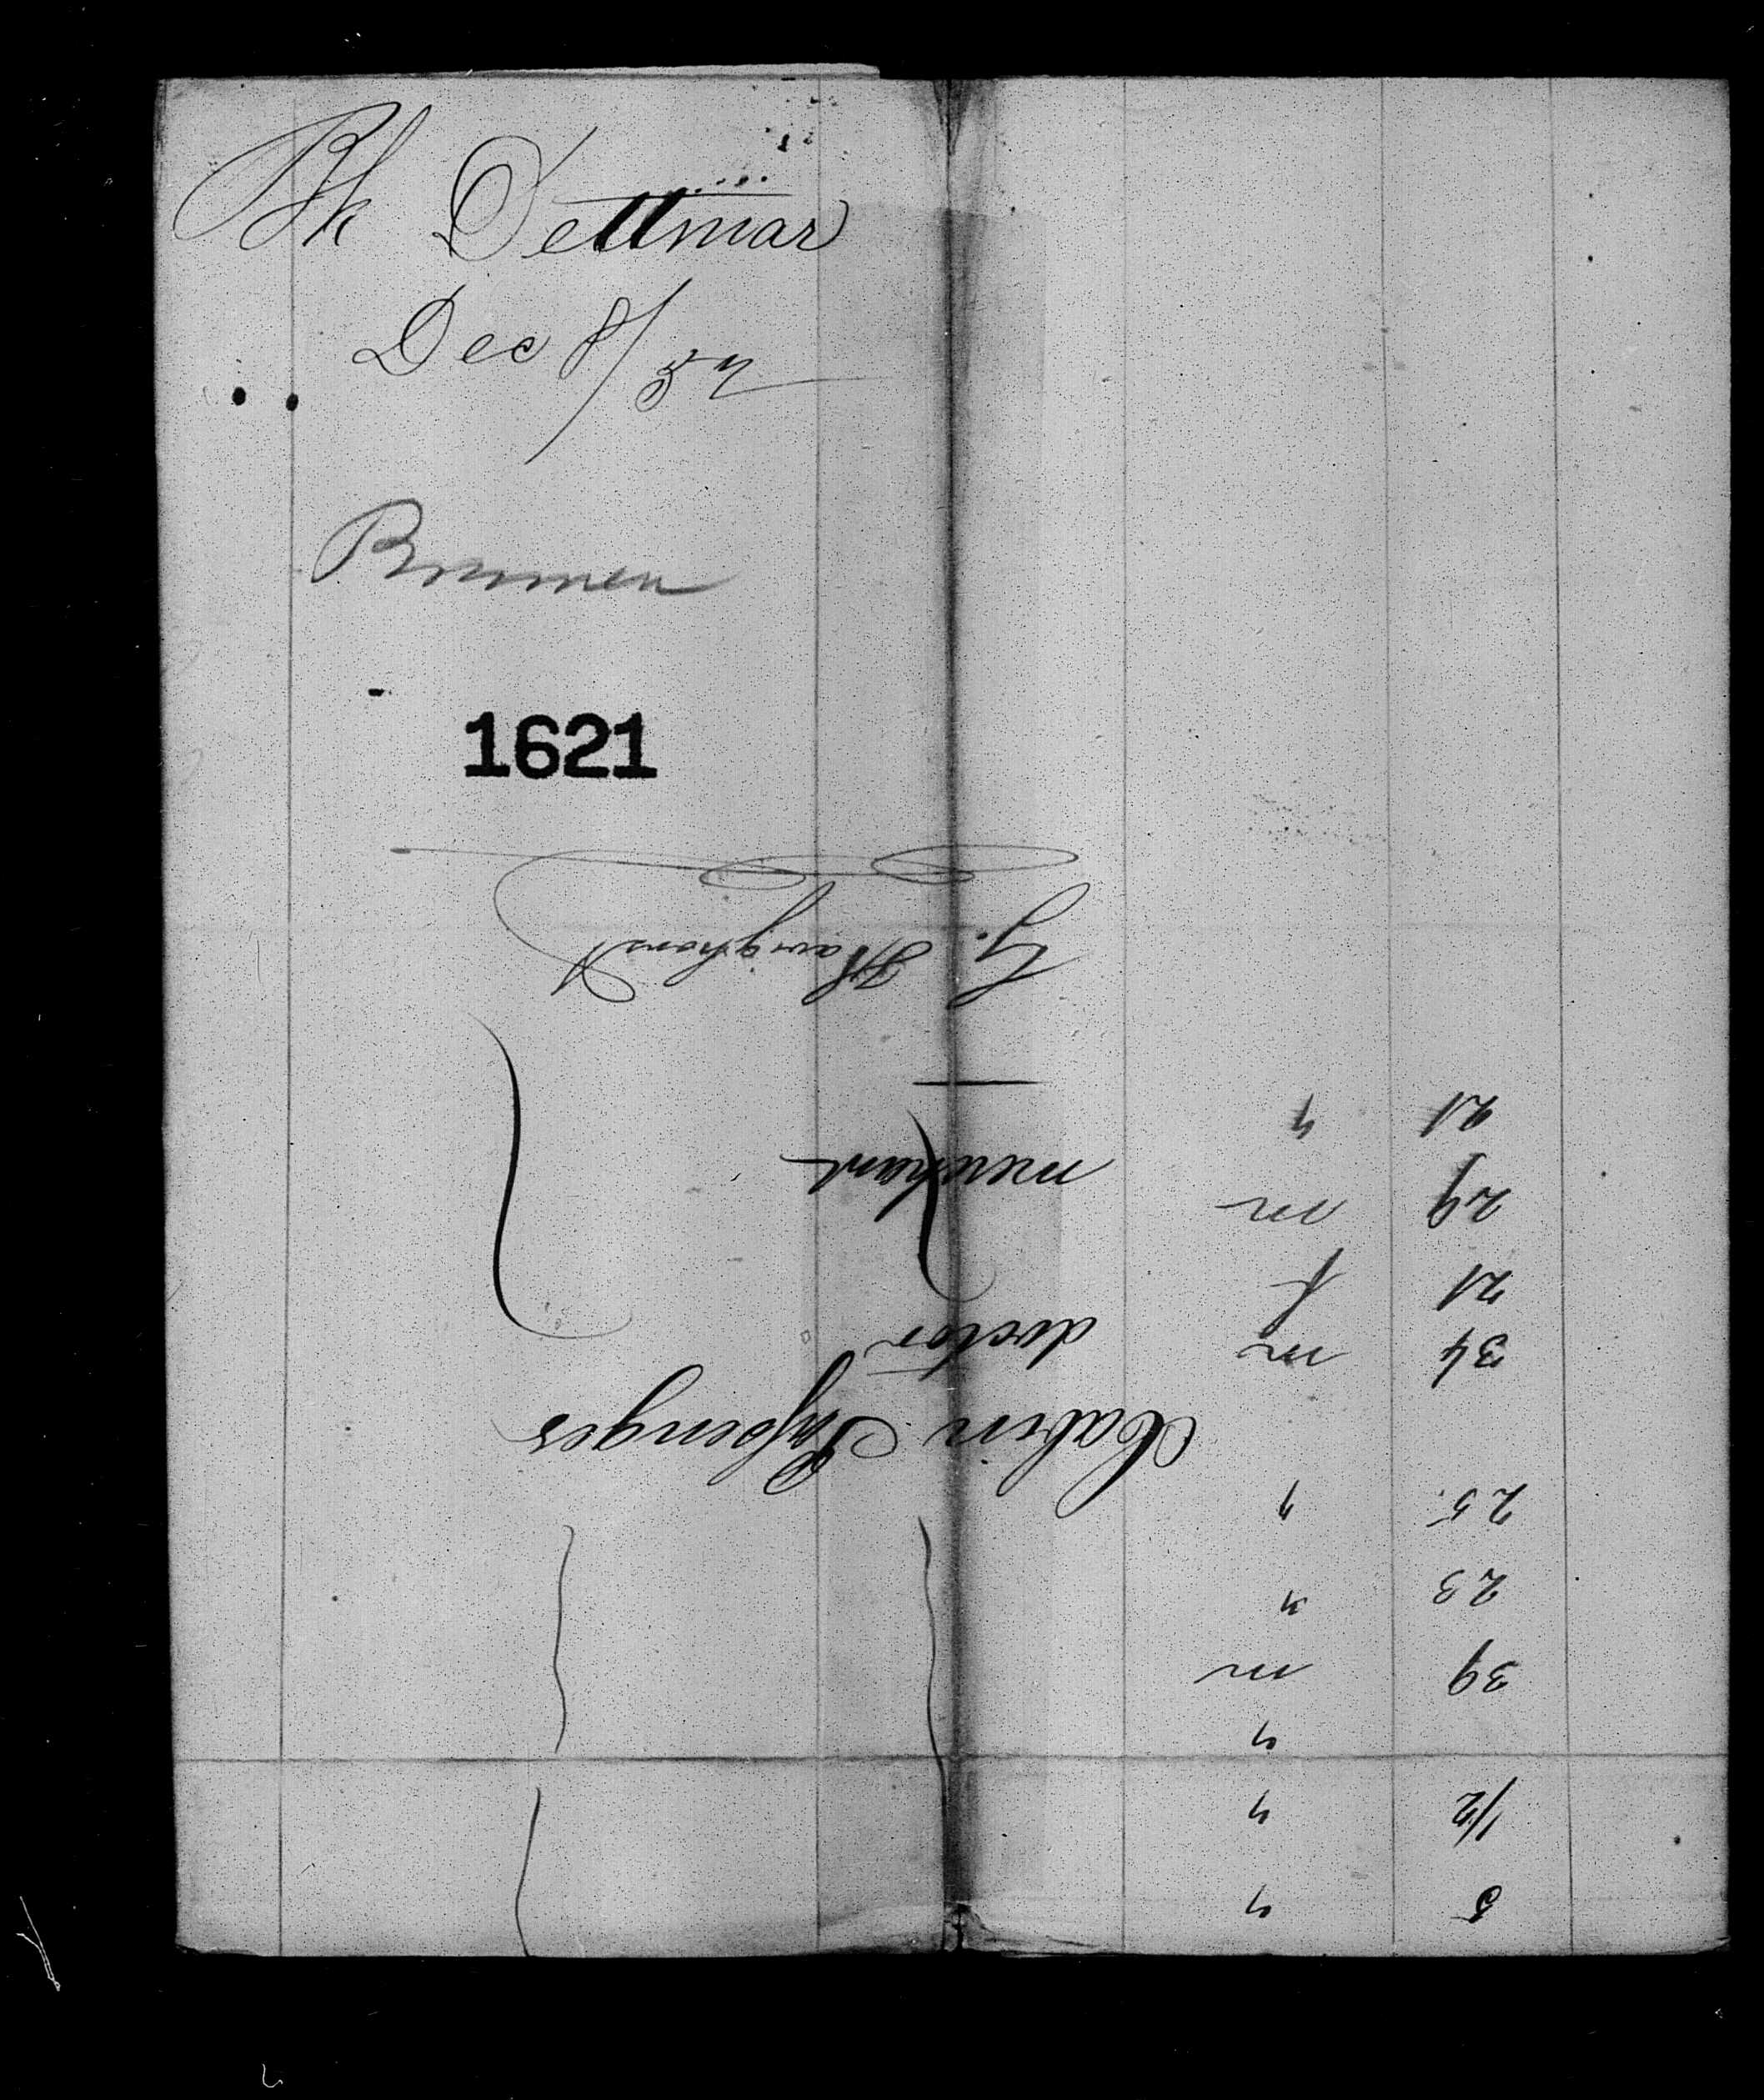 Bk Dettmar
Dec 8/52
Bremen
1621
5 "
1/2 "
"
39 m
23 "
25. "
Cabin Passenges
34 m doctor
21 f
29 m merchant
21 "